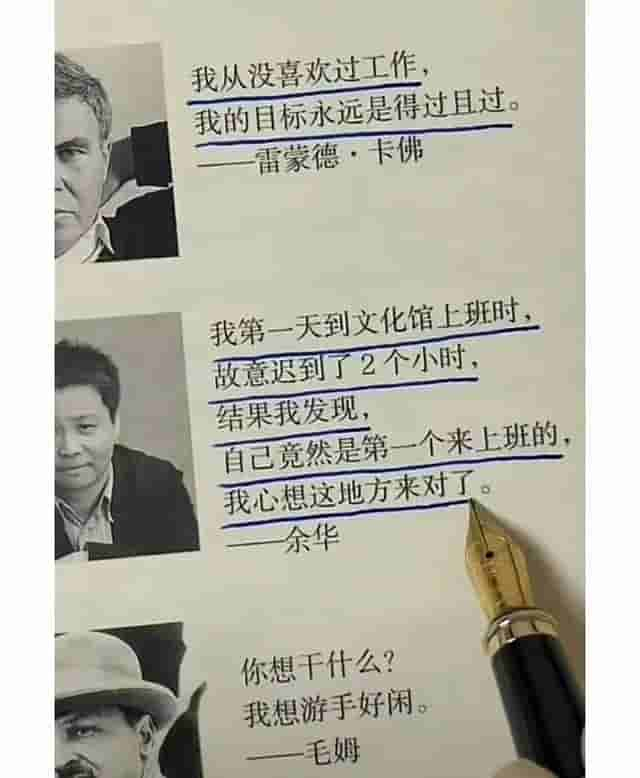 我从没喜欢过工作，
我的目标永远是得过且过。
——雷蒙德·卡佛
我第一天到文化馆上班时，
故意迟到了2个小时，
结果我发现，
自己竟然是第一个来上班的，
我心想这地方来对了。
——余华
你想干什么？
我想游手好闲。
——毛姆